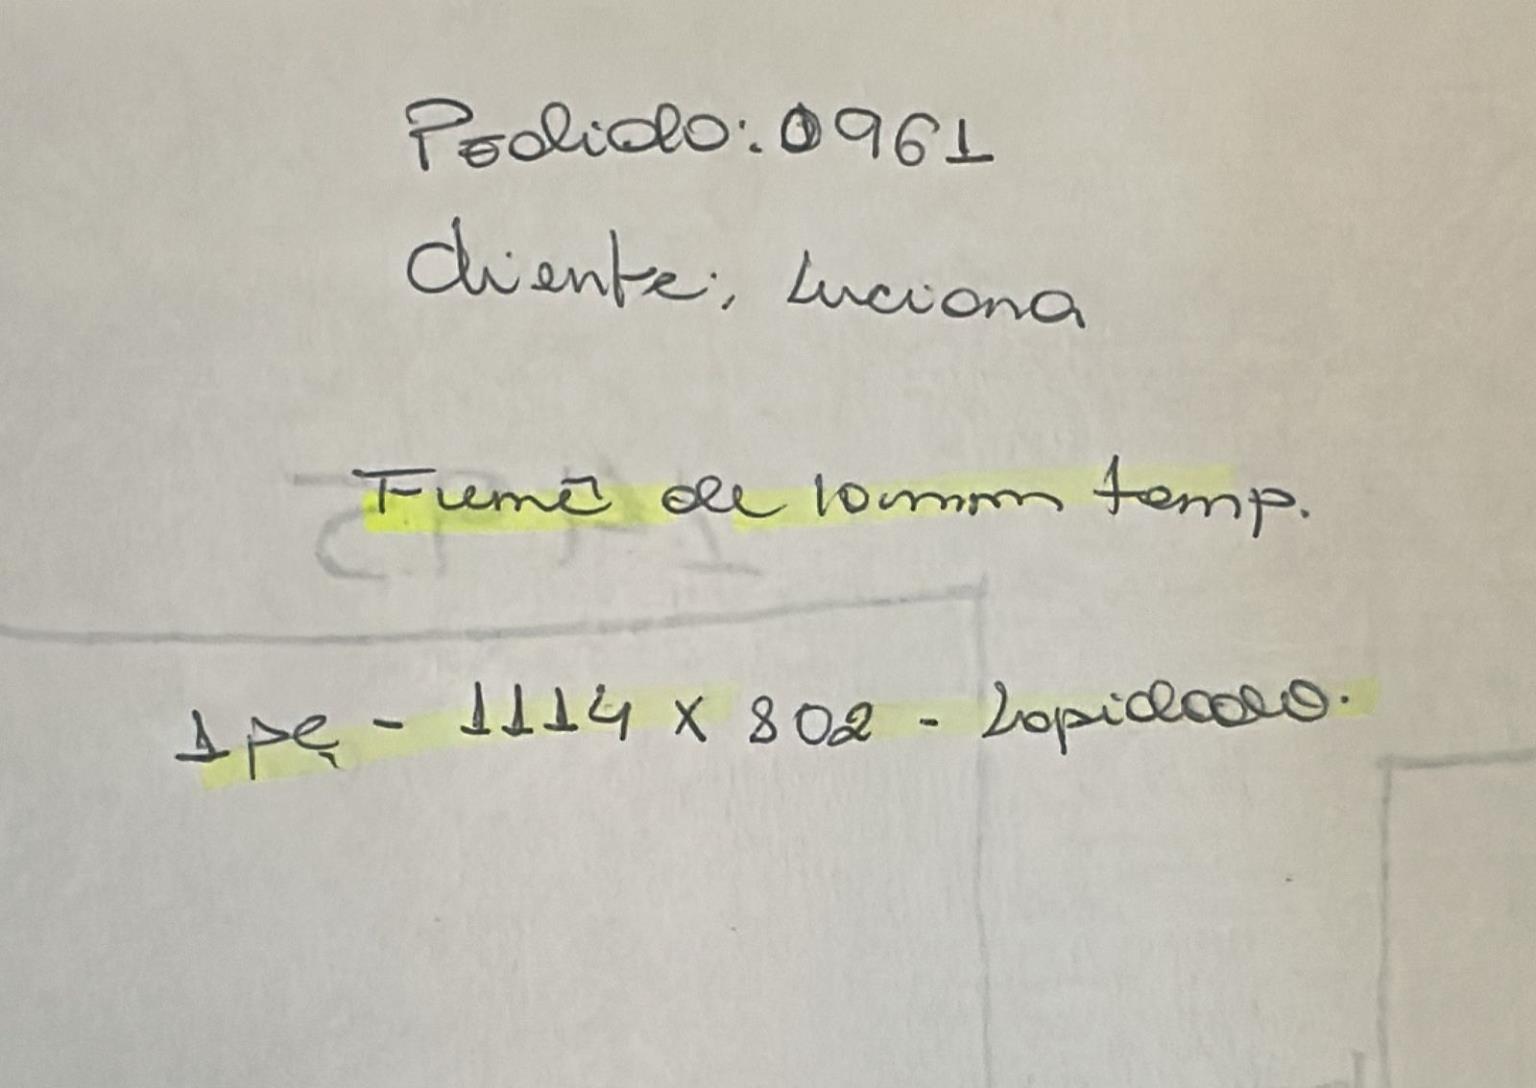 Pedido: 0961
Cliente; Luciana
Fumê de 10mm temp.
1 pç - 1114 x 802 - Lapidado.